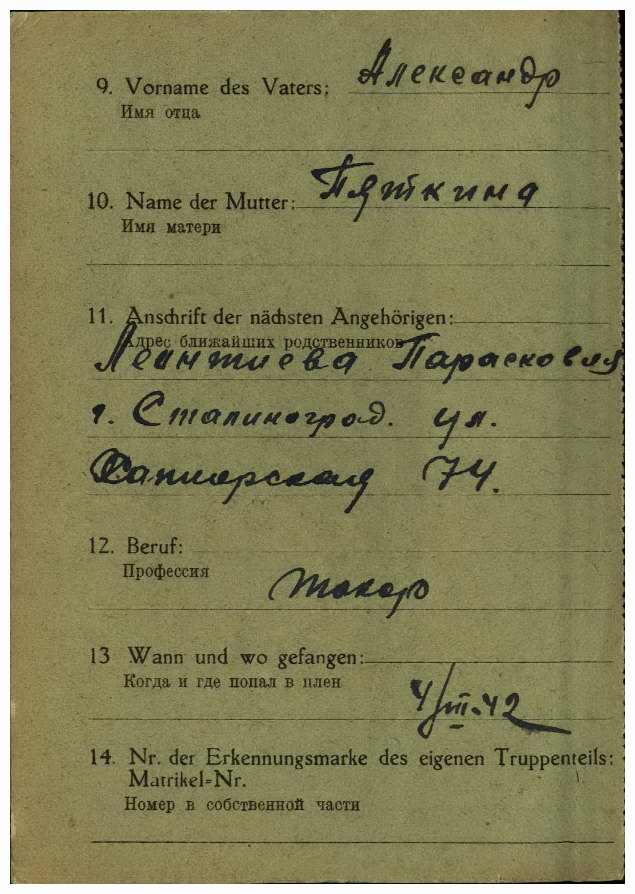 9. Vorname des Vaters: Александр
Имя отца
10. Name der Mutter: Пяткина
Имя матери
11. Anschrift der nächsten Angehörigen:
Адрес ближайших родственников
Леонтиева Парасковия
г. Сталиноград. ул.
74.
12. Beruf:
Профессия
токар
13 Wann und wo gefangen:
Когда и где попал в плен
4/III-42
14. Nr. der Erkennungsmarke des eigenen Truppenteils:
Matrikel=Nr.
Номер в собственной части